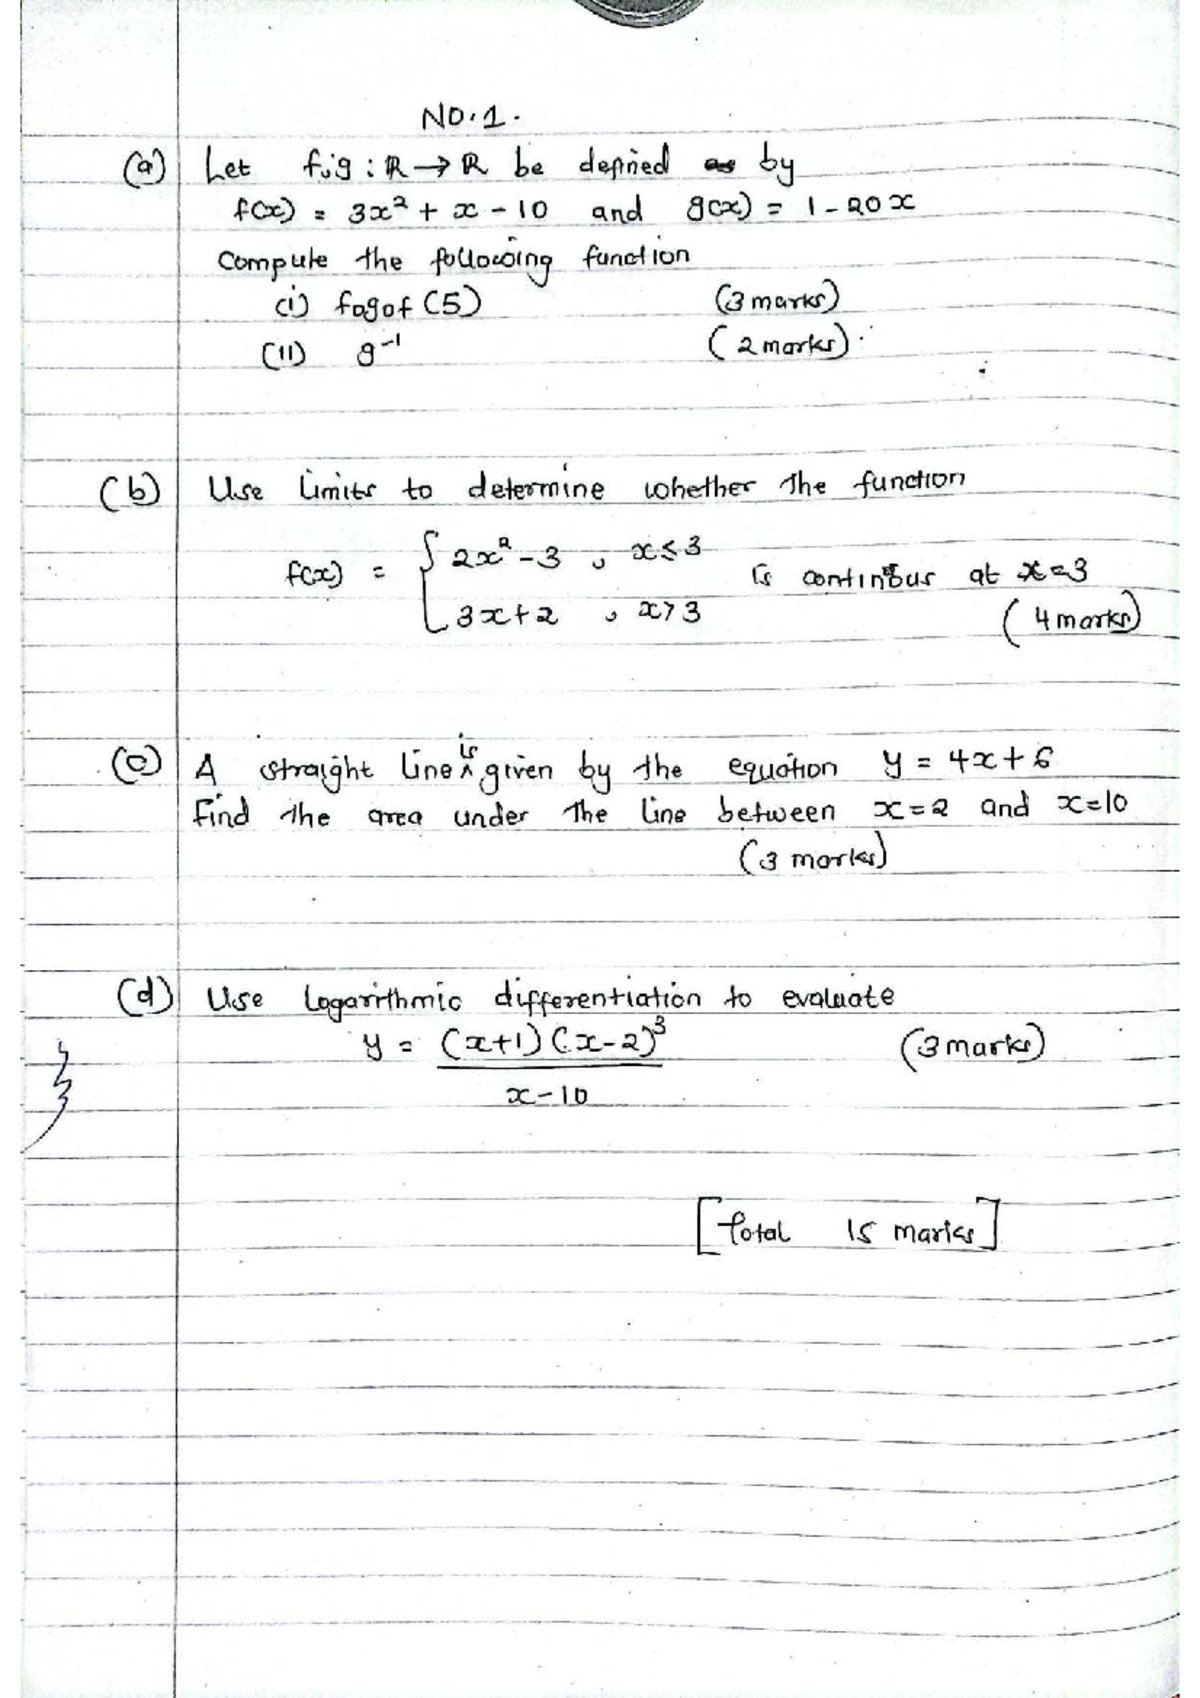 NO.1.
(a) Let f,g : ℝ → ℝ be defined as by
f(x) = 3x² + x - 10 and g(x) = 1 - 20x
Compute the following function
(i) fogof (5) (3 marks)
(ii) g⁻¹ (2 marks).
(b) Use limits to determine whether the function
f(x) = { 2x² - 3 , x ≤ 3
is continous at x = 3
3x + 2 , x > 3 (4 marks)
(c) A straight line is given by the equation y = 4x + 6
Find the area under the line between x = 2 and x = 10
(3 marks)
(d) Use logarithmic differentiation to evaluate
y = (x+1) (x-2)³ (3 marks)
x - 10
[Total 15 marks]